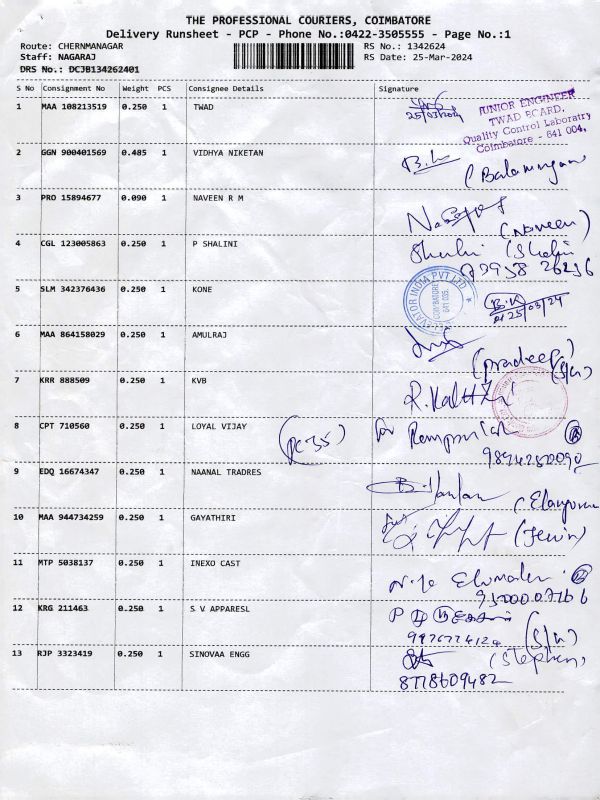 THE PROFESSIONAL COURIERS, COIMBATORE
Delivery Runsheet - PCP - Phone No.:0422-3505555 - Page No.:1
Route: CHERNMANAGAR RS No.: 1342624
Staff: NAGARAJ RS Date: 25-Mar-2024
DRS No.: DCJB134262401
S No Consignment No Weight PCS Consignee Details Signature
1 MAA 108213519 0.250 1 TWAD 25/03/2024
JUNIOR ENGINEER
TWAD BOARD,
Quality Control Laboratry
Coimbatore - 641 004.
2 GGN 900401569 0.485 1 VIDHYA NIKETAN
(Balamurugan
3 PRO 15894677 0.090 1 NAVEEN R M
(Naveen)
4 CGL 123005863 0.250 1 P SHALINI
Shalini (Shalini
5 SLM 342376436 0.250 1 KONE
25/03/24
6 MAA 864158029 0.250 1 AMULRAJ
(pradeep)
(S/W)
7 KRR 888509 0.250 1 KVB
8 CPT 710560 0.250 1 LOYAL VIJAY
9894252090
9 EDQ 16674347 0.250 1 NAANAL TRADRES
10 MAA 944734259 0.250 1 GAYATHIRI
(Jewin)
11 MTP 5038137 0.250 1 INEXO CAST
12 KRG 211463 0.250 1 S V APPARESL
(S/W)
13 RJP 3323419 0.250 1 SINOVAA ENGG
(Stephen)
8778609482